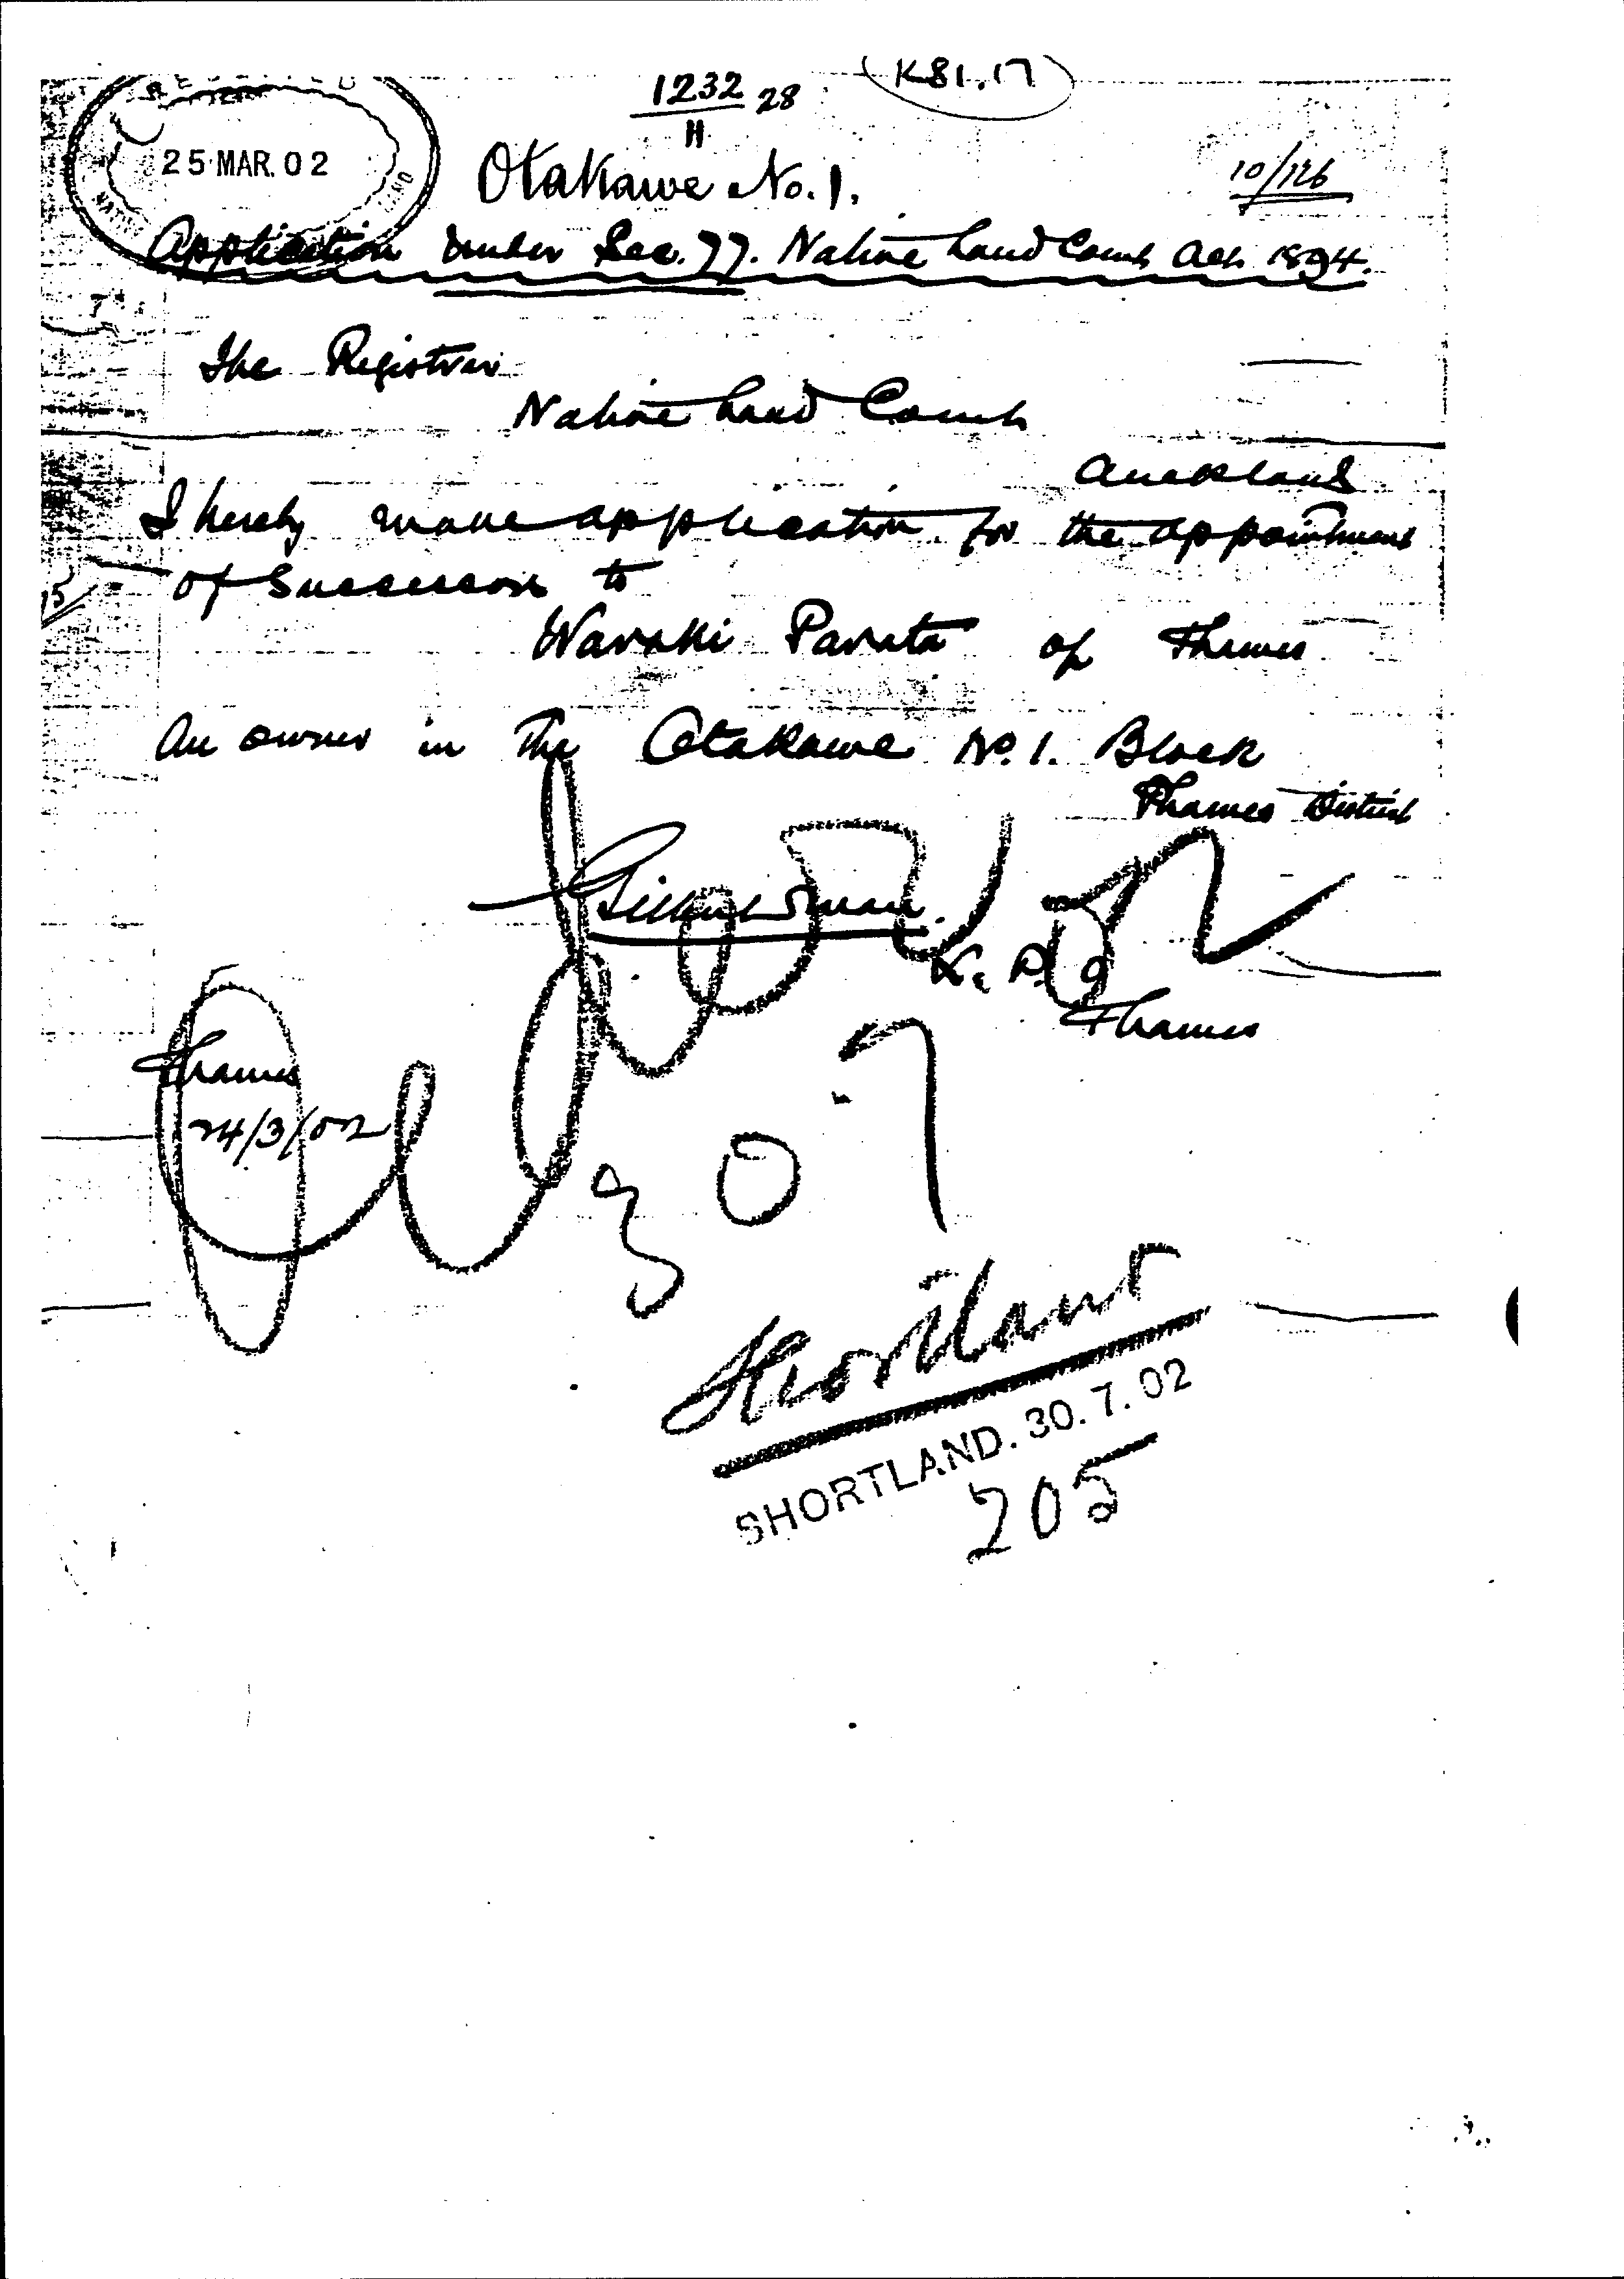 K81.17
1232 28
H
25 MAR. 02
NATIVE LAND
Otakawe No. 1.
10/126
Application Under Sec. 77. Native Land Court Act 1894.
The Registrar
Native Land Court
Auckland
I hereby make application for the appointment
of Successors to
Waraki Parata of Thames
An owner in The Otakawe No. 1. Block
Thames District
Thames
Thames
24/3/02
307
Shortland
SHORTLAND. 30. 7. 02
205